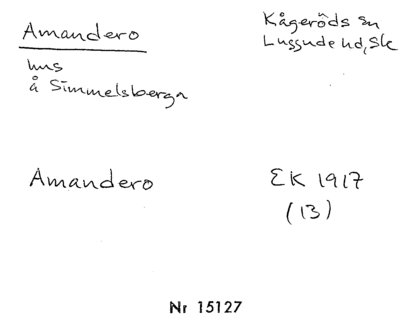 Amandero
Kågeröds sn
Luggude hd, Sk
hus
å Simmelsberga
Amandero
EK 1917
(13)
Nr 15127